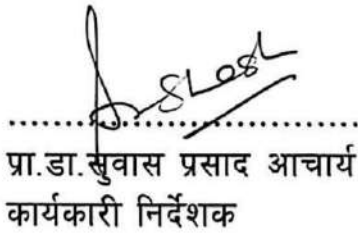 प्रा.डा.सुवास प्रसाद आचार्य
कार्यकारी निर्देशक